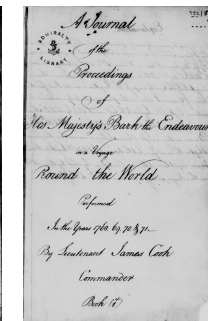 A Journal
ADMIRALTY
LIBRARY
of the
Proceedings
of
His Majestys Bark the Endeavour
in a Voyage
Round the World
Performed
In the Years 1768, 69, 70 & 71
By Lieutenant James Cook
Commander
Book